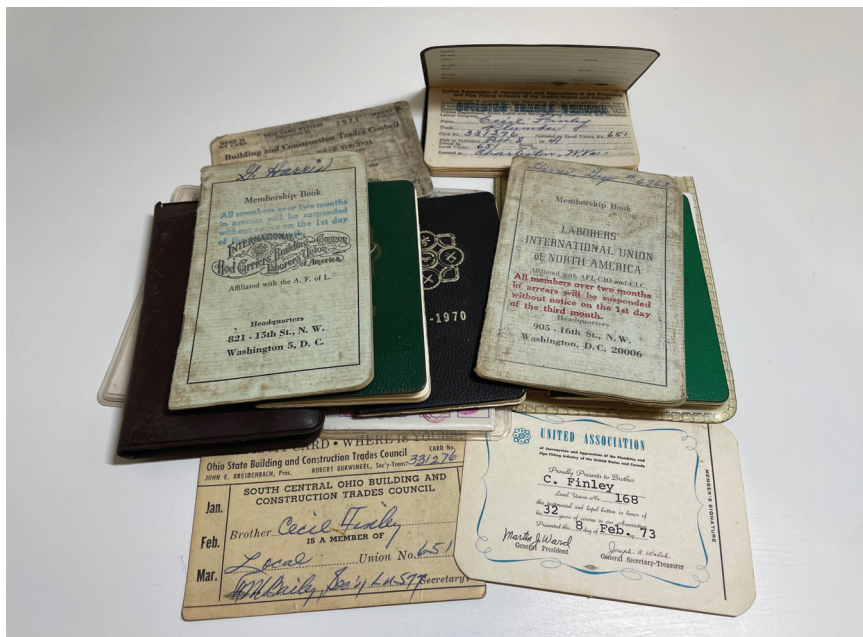 United Association of Journeymen and Apprentices of the Plumbing
and Pipe Fitting Industry of the United States and Canada
BUILDING TRADES
Name Cecil Finley
Trade Plumber
Card No. 331276
Local Union No. 651
651
Located at Charleston, W.Va.
THIS CARD EXPIRES
Building and Construction Trades Council
WEST VIRGINIA
G. Harris
Membership Book
All members over two months
in arrears will be suspended
without notice on the 1st day
of
INTERNATIONAL
Hod Carriers Building and Common
Laborers Union
of America
Affiliated with the A. F. of L.
Headquarters
821 - 15th St., N. W.
Washington 5, D. C.
-1970
Membership Book
LABORERS'
INTERNATIONAL UNION
of NORTH AMERICA
Affiliated with AFL-CIO and CLC
All members over two months
in arrears will be suspended
without notice on the 1st day
of the third month.
Headquarters
905 - 16th St., N. W.
Washington, D. C. 20006
CARD • WHERE IS YOURS
Ohio State Building and Construction Trades Council
CARD No.
331276
JOHN E. BREIDENBACH, Pres. ROBERT BURWINKEL, Sec'y-Treas.
SOUTH CENTRAL OHIO BUILDING AND
CONSTRUCTION TRADES COUNCIL
Jan.
Feb.
Mar.
Brother Cecil Finley
IS A MEMBER OF
Local Union No. 651
Bailey, Sec'y L.U. 577 Secretary
UNITED ASSOCIATION
of Journeymen and Apprentices of the Plumbing and
Pipe Fitting Industry of the United States and Canada
Proudly Presents to Brother
C. Finley
Local Union No. 168
this testimonial and lapel button in honor of
his 32 years of service in our Association
Presented this 8 day of Feb. 73
Martin J. Ward
General President
Joseph A. Walsh
General Secretary-Treasurer
MEMBER'S SIGNATURE